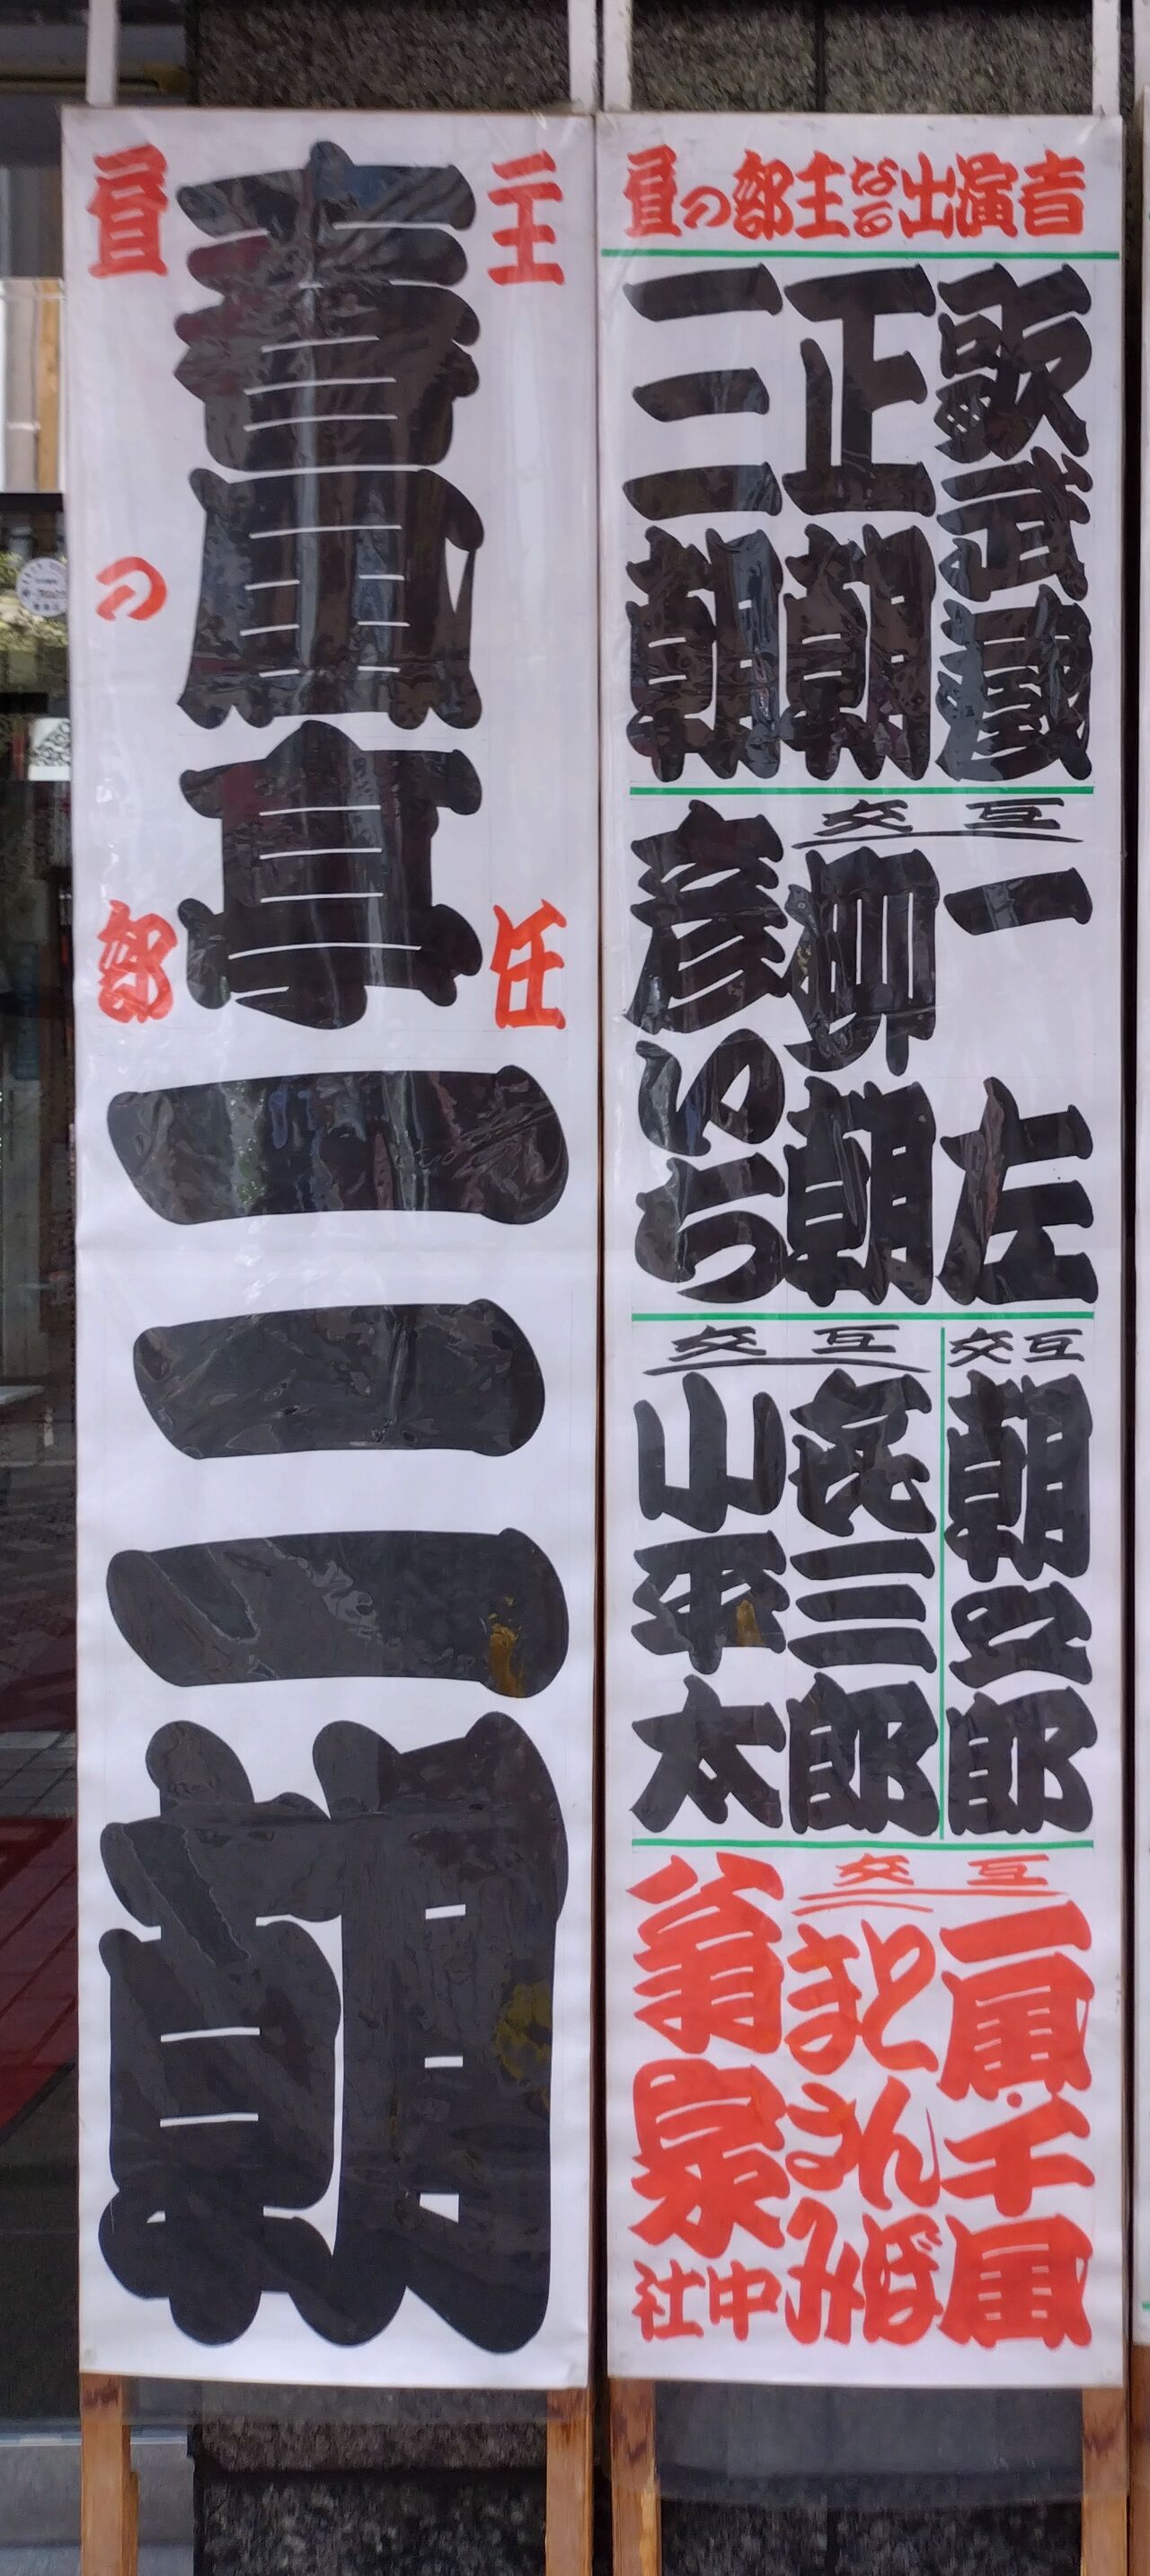 昼の部主なる出演者
歌武蔵
正朝
三朝
交互
一左
柳朝
彦いち
交互
交互
㐂三郎
小平太
交互
一風・千風
とんぼ
まさみ
翁家社中
主任
春風亭三朝
昼の部